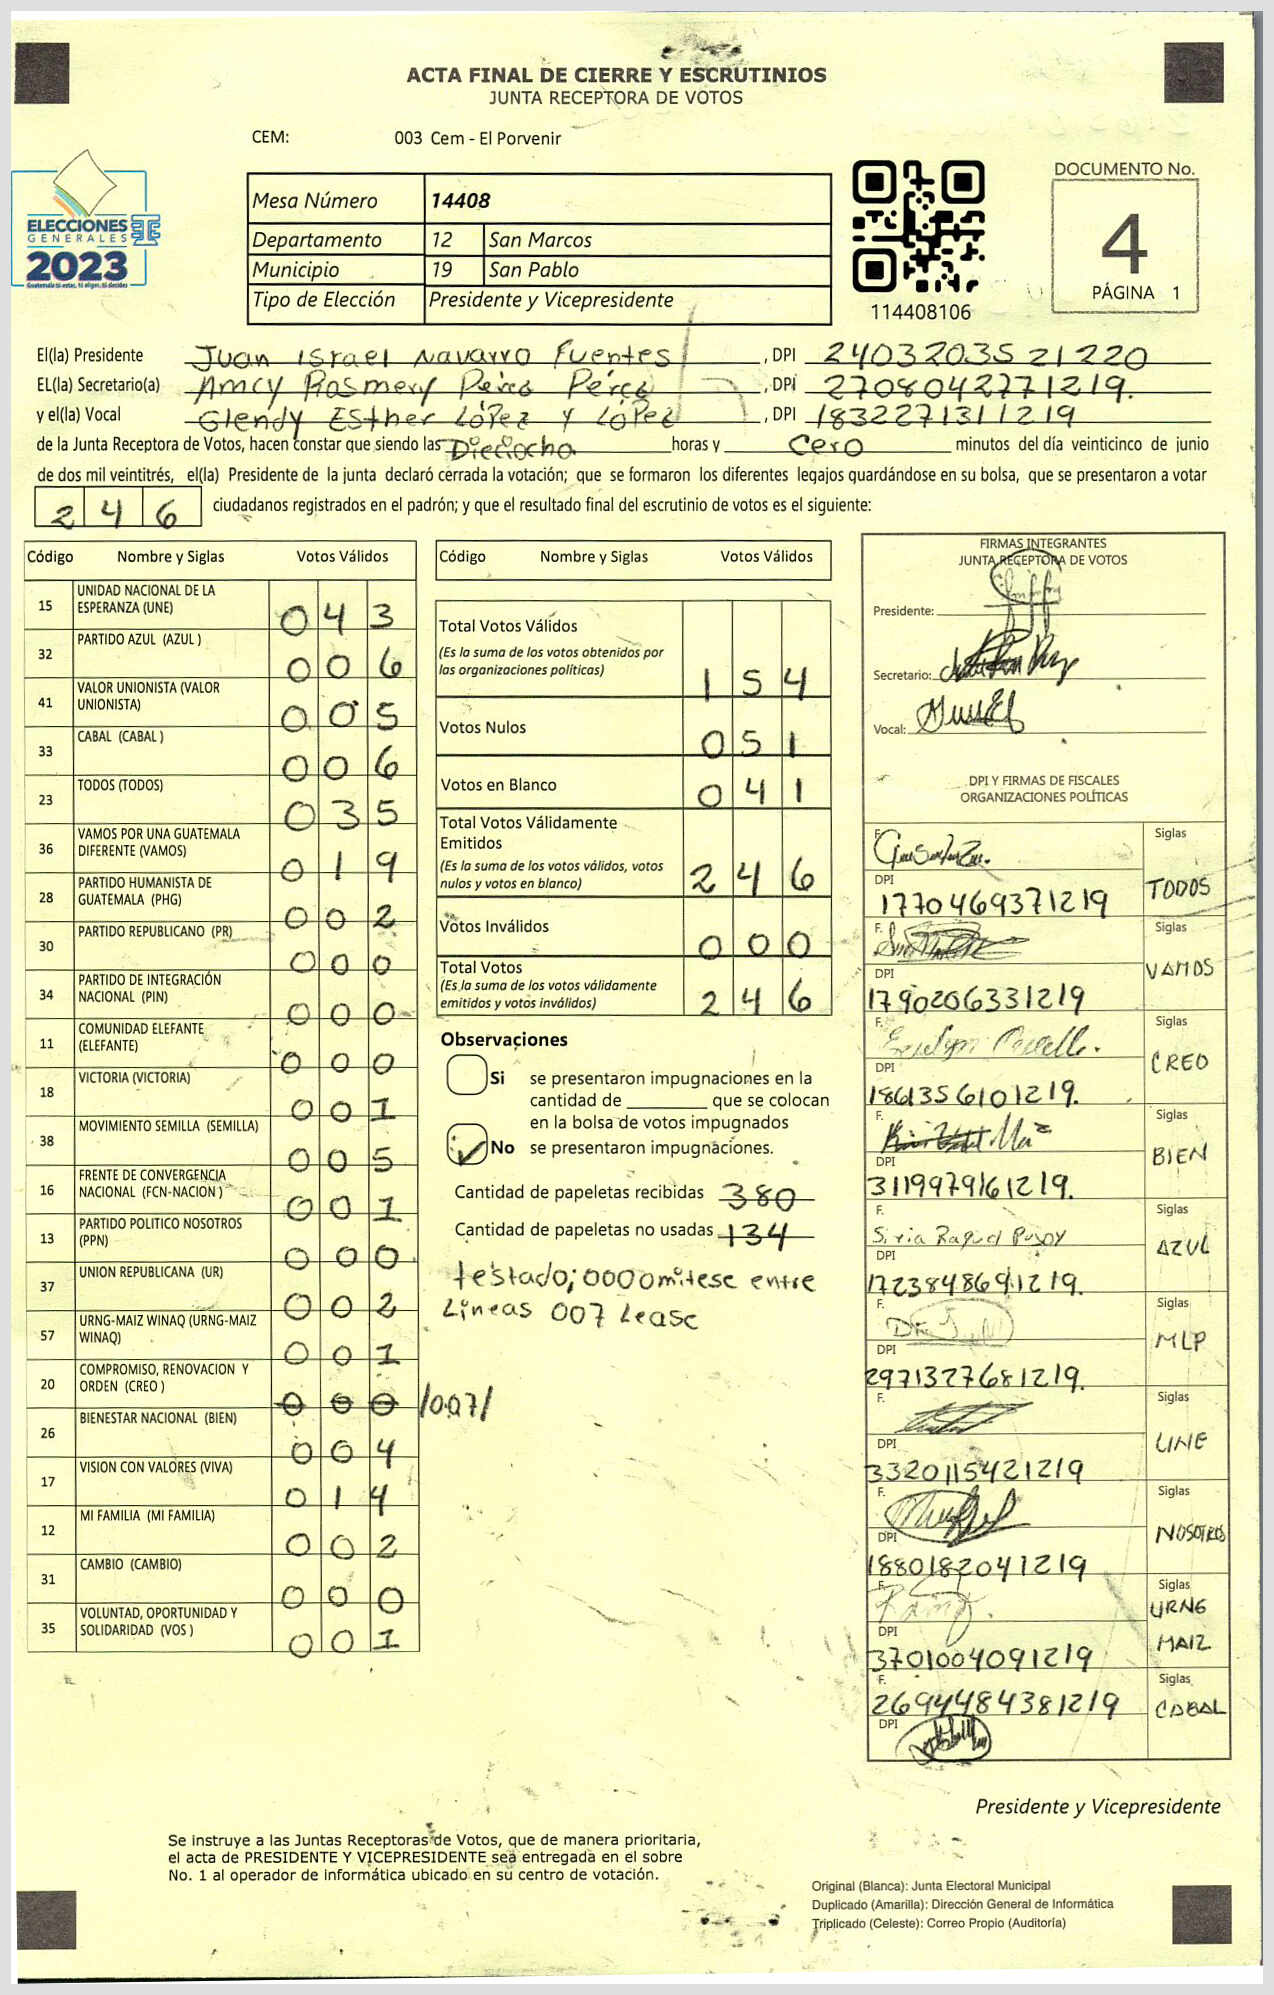 ACTA FINAL DE CIERRE Y ESCRUTINIOS
JUNTA RECEPTORA DE VOTOS
CEM: 003 Cem - El Porvenir
ELECCIONES
GENERALES
2023
Guatemala tú votas, tú eliges, tú decides
Mesa Número 14408
Departamento 12 San Marcos
Municipio 19 San Pablo
Tipo de Elección Presidente y Vicepresidente
114408106
DOCUMENTO No.
4
PÁGINA 1
El(la) Presidente Juan Israel Navarro Fuentes, DPI 2403203521220
EL(la) Secretario(a) Amcy Rosmery Pérez Pérez, DPI 2708042771219.
y el(la) Vocal Glendy Esther López y López, DPI 1832271311219
de la Junta Receptora de Votos, hacen constar que siendo las Dieciocho horas y Cero minutos del día veinticinco de junio
de dos mil veintitrés, el(la) Presidente de la junta declaró cerrada la votación; que se formaron los diferentes legajos guardándose en su bolsa, que se presentaron a votar
246 ciudadanos registrados en el padrón; y que el resultado final del escrutinio de votos es el siguiente:
Código Nombre y Siglas Votos Válidos
15 UNIDAD NACIONAL DE LA
ESPERANZA (UNE) 043
32 PARTIDO AZUL (AZUL ) 006
41 VALOR UNIONISTA (VALOR
UNIONISTA) 005
33 CABAL (CABAL ) 006
23 TODOS (TODOS) 035
36 VAMOS POR UNA GUATEMALA
DIFERENTE (VAMOS) 019
28 PARTIDO HUMANISTA DE
GUATEMALA (PHG) 002
30 PARTIDO REPUBLICANO (PR) 000
34 PARTIDO DE INTEGRACIÓN
NACIONAL (PIN) 000
11 COMUNIDAD ELEFANTE
(ELEFANTE) 000
18 VICTORIA (VICTORIA) 001
38 MOVIMIENTO SEMILLA (SEMILLA) 005
16 FRENTE DE CONVERGENCIA
NACIONAL (FCN-NACION ) 001
13 PARTIDO POLITICO NOSOTROS
(PPN) 000
37 UNION REPUBLICANA (UR) 002
57 URNG-MAIZ WINAQ (URNG-MAIZ
WINAQ) 001
20 COMPROMISO, RENOVACION Y
ORDEN (CREO ) 000 /007/
26 BIENESTAR NACIONAL (BIEN) 004
17 VISION CON VALORES (VIVA) 014
12 MI FAMILIA (MI FAMILIA) 002
31 CAMBIO (CAMBIO) 000
35 VOLUNTAD, OPORTUNIDAD Y
SOLIDARIDAD (VOS ) 001
Código Nombre y Siglas Votos Válidos
Total Votos Válidos
(Es la suma de los votos obtenidos por
las organizaciones políticas) 154
Votos Nulos 051
Votos en Blanco 041
Total Votos Válidamente
Emitidos
(Es la suma de los votos válidos, votos
nulos y votos en blanco) 246
Votos Inválidos 000
Total Votos
(Es la suma de los votos válidamente
emitidos y votos inválidos) 246
Observaciones
Si se presentaron impugnaciones en la
cantidad de ________ que se colocan
en la bolsa de votos impugnados
No se presentaron impugnaciones.
Cantidad de papeletas recibidas 380
Cantidad de papeletas no usadas 134
testado; 000 omitese entre
Lineas 007 Lease
FIRMAS INTEGRANTES
JUNTA RECEPTORA DE VOTOS
Presidente:
Secretario:
Vocal:
DPI Y FIRMAS DE FISCALES
ORGANIZACIONES POLÍTICAS
F. Siglas
DPI 1770469371219 TODOS
F. Siglas
DPI 1790206331219 VAMOS
F. Siglas
DPI 1861356101219. CREO
F. Siglas
DPI 3119979161219. BIEN
F. Siglas
DPI 1723848691219. AZUL
F. Siglas
DPI 2971327681219. MLP
F. Siglas
DPI 3320115421219 LINE
F. Siglas
DPI 1880182041219 NOSOTROS
F. Siglas
DPI 3701004091219 URNG
MAIZ
F. 2694484381219 Siglas
DPI CABAL
Presidente y Vicepresidente
Se instruye a las Juntas Receptoras de Votos, que de manera prioritaria,
el acta de PRESIDENTE Y VICEPRESIDENTE sea entregada en el sobre
No. 1 al operador de informática ubicado en su centro de votación.
Original (Blanca): Junta Electoral Municipal
Duplicado (Amarilla): Dirección General de Informática
Triplicado (Celeste): Correo Propio (Auditoría)